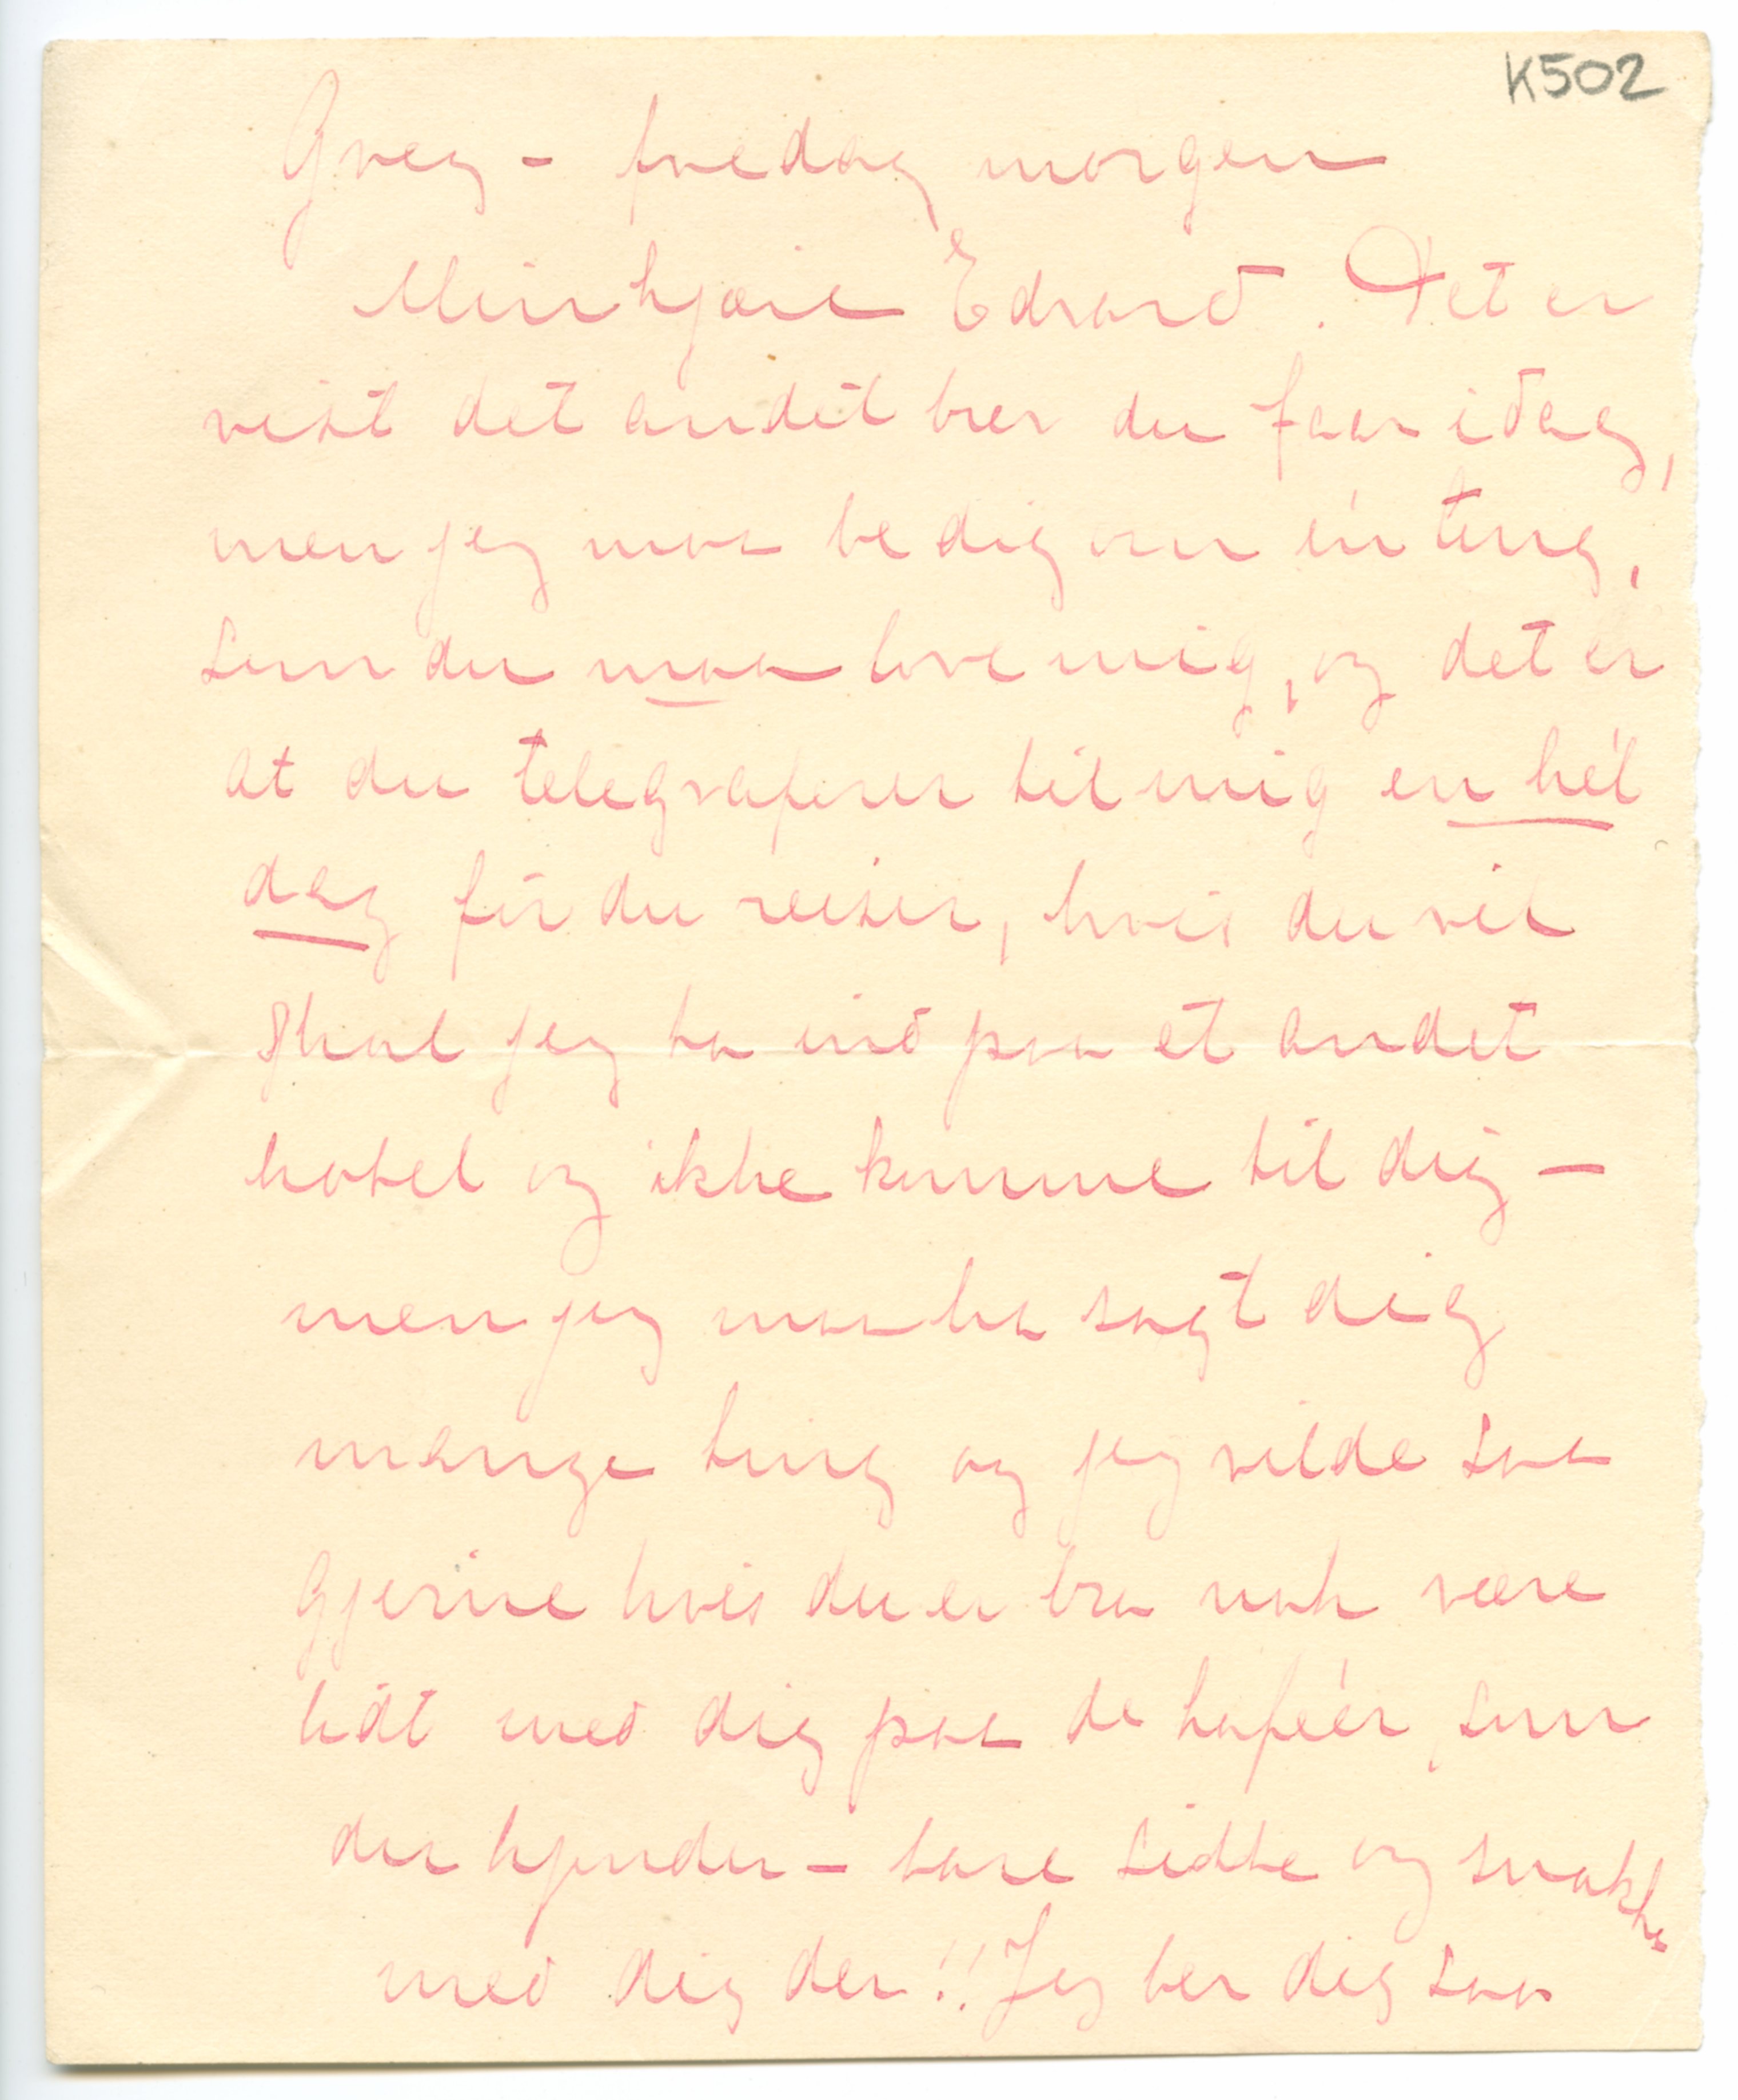 K502
Grez – fredag morgen
Min kjære Edvard. Det er
vist det andet brev du faar idag,
men jeg maa be dig om én ting,
som du maa love mig, og det er
at du telegraferer til mig en hél
dag før du reiser, hvis du vil
skal jeg ta ind paa et andet
hotel og ikke komme til dig –
men jeg maa ha sagt dig
mange ting og jeg vilde saa
gjerne hvis du er bra nok være
lidt med dig paa de kaféer, som
du kjender – bare sidde og snakke
med dig der!! Jeg ber dig saa